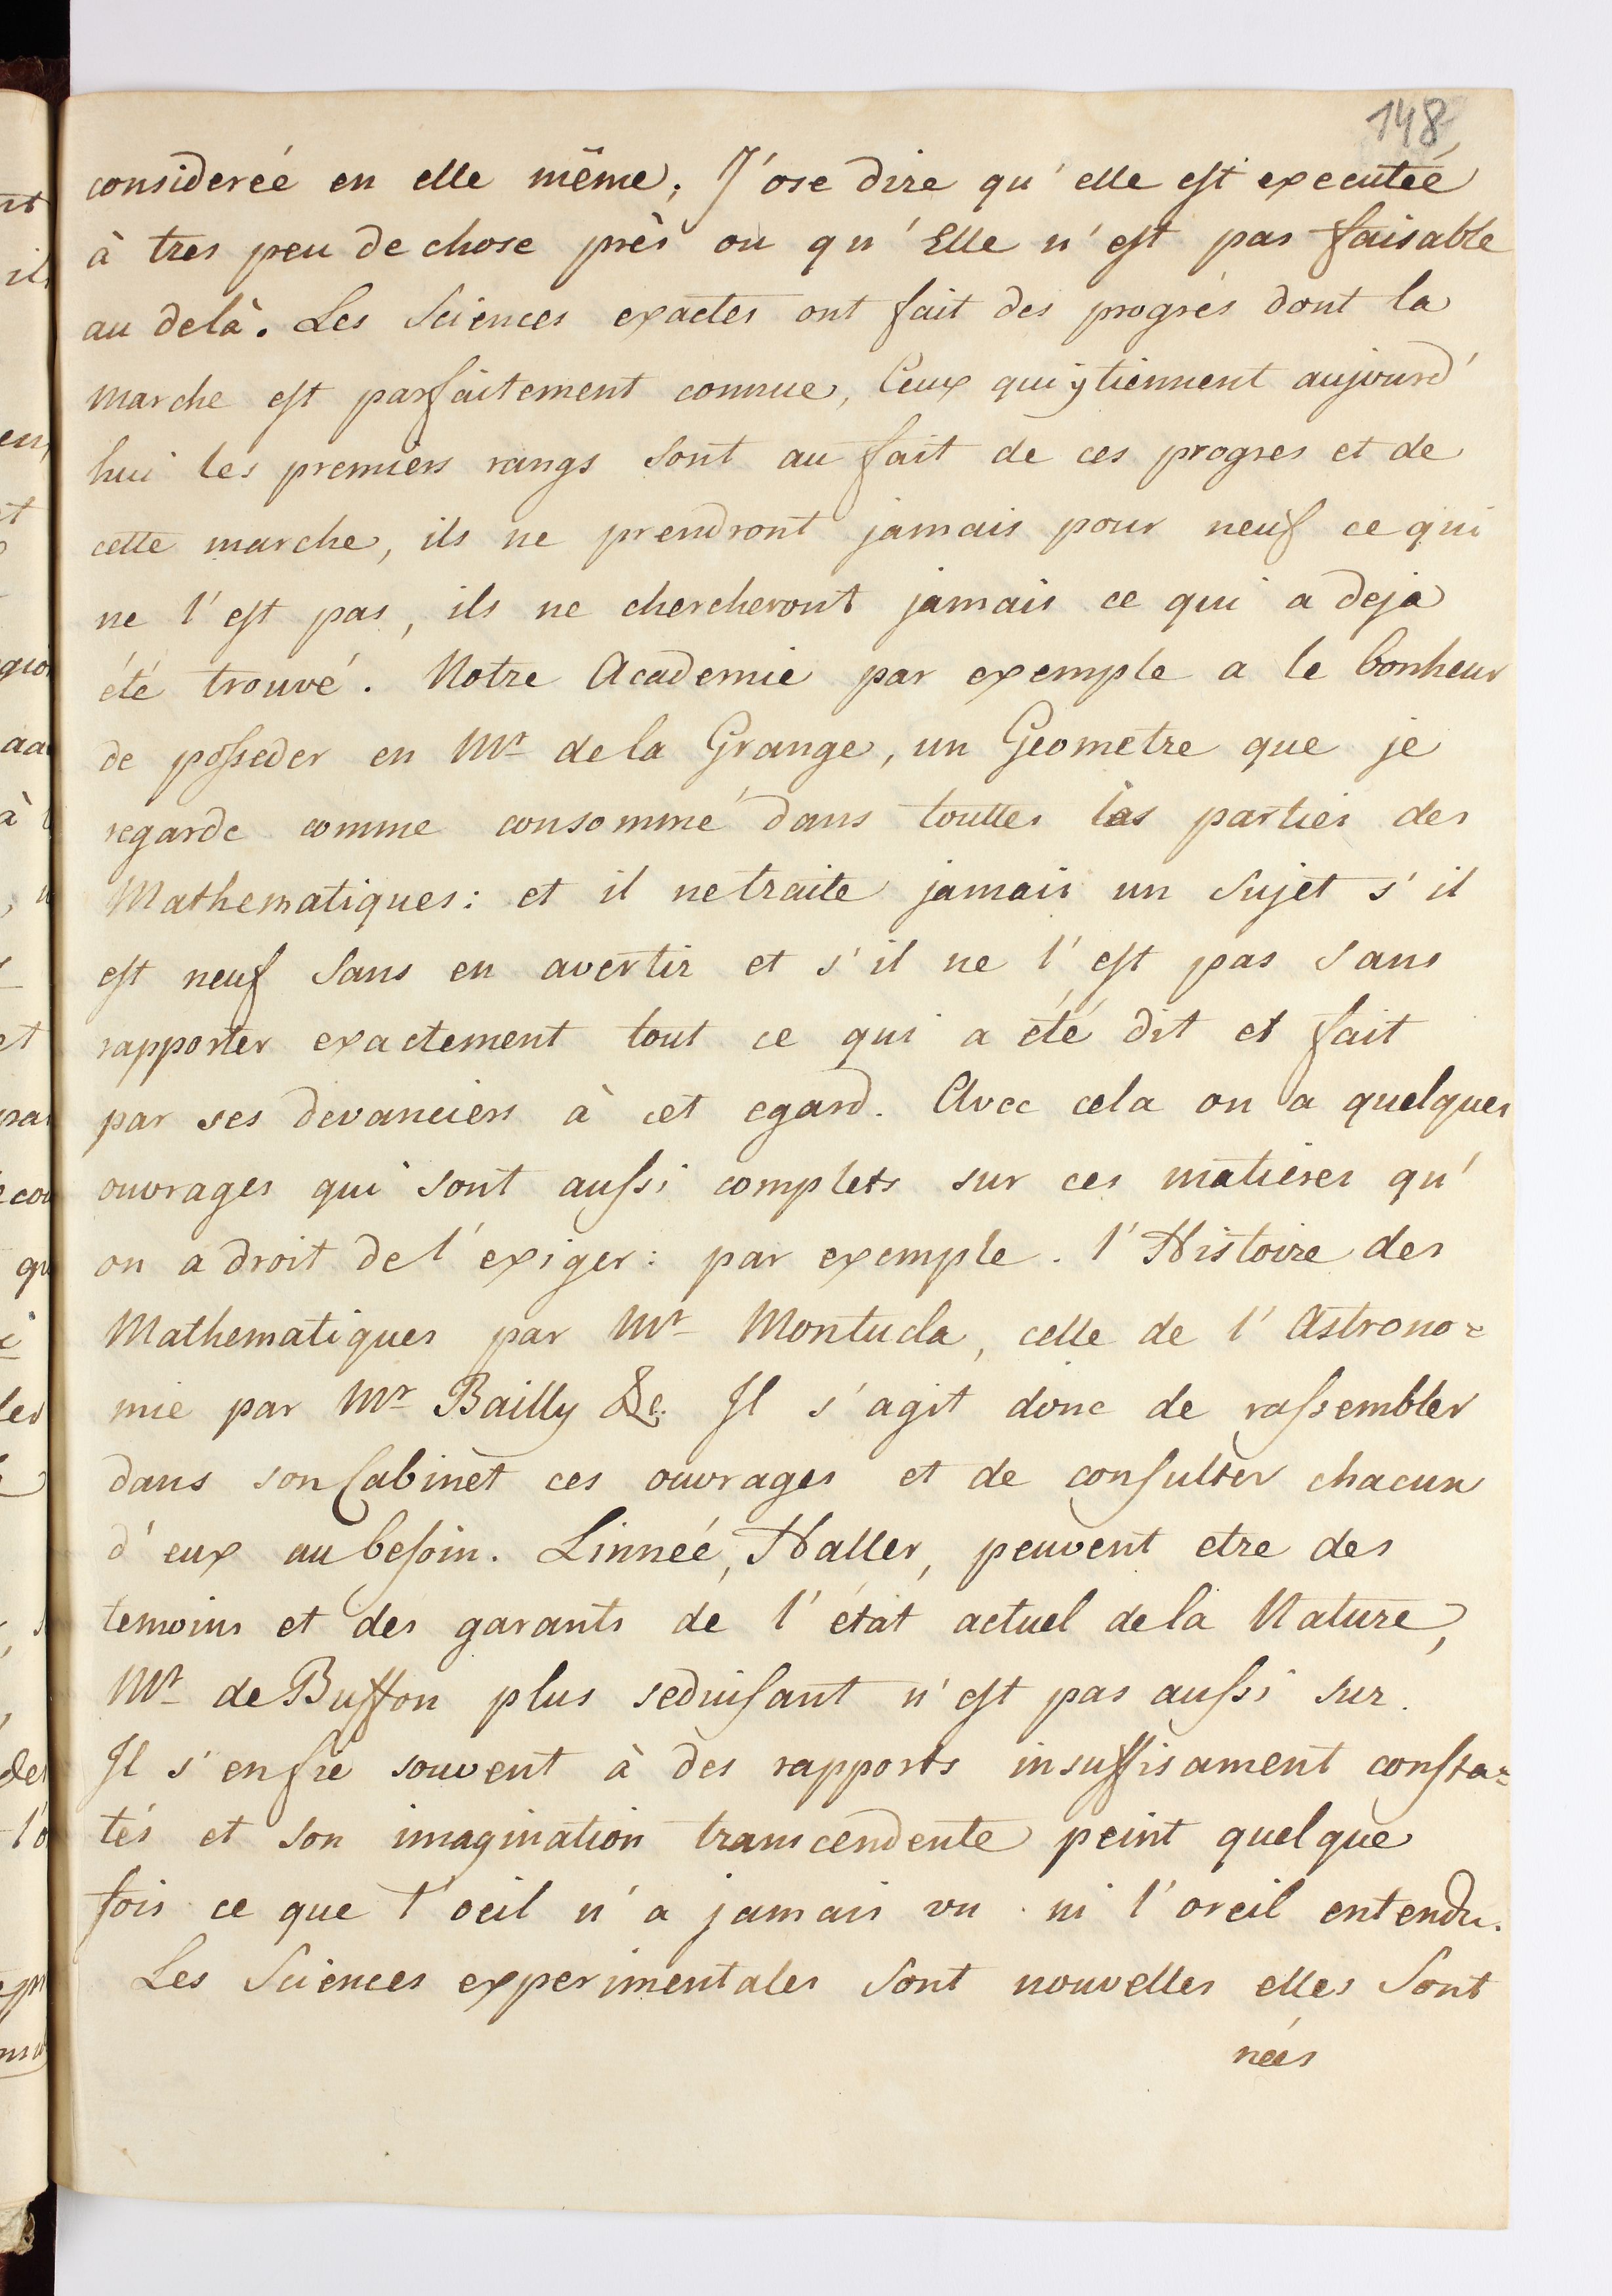 148
considereé en elle même; J'ose dire qu'elle est executeé
à tres peu de chose près ou qu'Elle n'est pas faisable
au delà. Les Sciences exactes ont fait des progrès dont la
marche est parfaitement connue, Ceux qui y tiennent aujourd'
hui les premiers rangs sont au fait de ces progres et de
cette marche, ils ne prendront jamais pour neuf ce qui
ne l'est pas, ils ne chercheront jamais ce qui a deja
été trouvé. Notre Academie par exemple a le bonheur
de posseder en Mr de la Grange, un Geometre que je
regarde comme consommé dans touttes las parties des
Mathematiques: et il ne traite jamais un sujet s'il
est neuf sans en avertir et s'il ne l'est pas sans
rapporter exactement tout ce qui a été dit et fait
par ses devanciers à cet egard. Avec cela on a quelques
ouvrages qui sont aussi complets sur ces matieres qu'
on a droit de l'exiger: par exemple. l'Histoire des
Mathematiques par Mr Montucla, celle de l'Astrono=
mie par Mr Bailly &c. Il s'agit donc de rassembler
dans son Cabinet ces ouvrages et de consulter chacun
d'eux au besoin. Linneé, Haller, peuvent etre des
temoins et des garants de l'état actuel de la Nature,
Mr de Buffon plus seduisant n'est pas aussi sur.
Il s'en fie souvent à des rapports insuffisament consta=
tés et son imagination transcendente peint quelque
fois ce que l'oeil n'a jamais vu ni l'oreil entendu.
Les Sciences experimentales sont nouvelles elles sont
neés